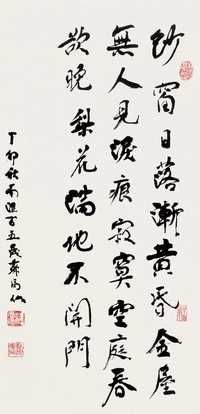 紗窗日落漸黃昏金屋
無人見淚痕寂寞空庭春
欲晚梨花滿地不開門
丁卯秋南匯百五歲蘇局仙